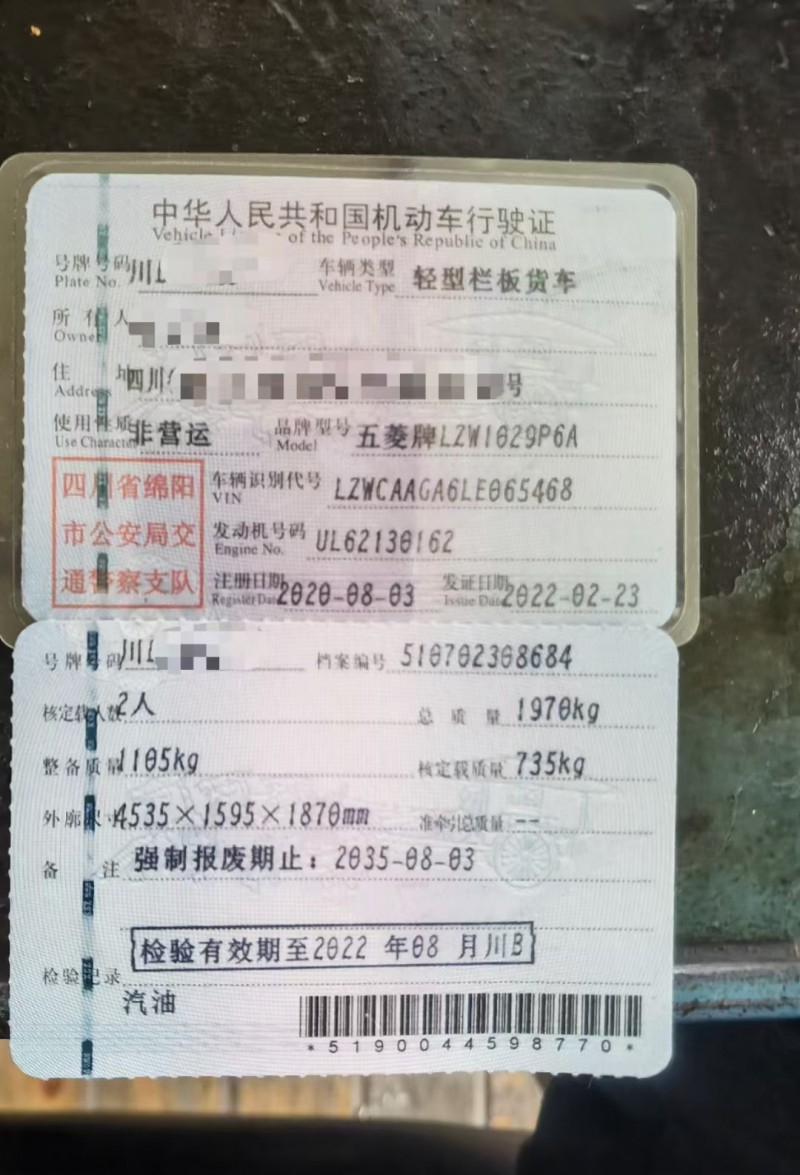 中华人民共和国机动车行驶证
Vehicle of the People's Republic of China
号牌号码 川L 车辆类型 轻型栏板货车
Plate No. Vehicle Type
所有人
Owner
住址 四川 号
Address
使用性质 非营运 品牌型号 五菱牌LZW1029P6A
Use Character Model
四川省绵阳
市公安局交
通警察支队
车辆识别代号 LZWCAAGA6LE065468
VIN
发动机号码 UL62130162
Engine No.
注册日期 2020-08-03 发证日期 2022-02-23
Register Date Issue Date
号牌号码 川L 档案编号 510702308684
核定载人数 2人 总质量 1970kg
整备质量 1105kg 核定载质量 735kg
外廓尺寸 4535×1595×1870mm 准牵引总质量 --
备注 强制报废期止：2035-08-03
检验有效期至2022 年08 月川B
检验记录
汽油
*5190044598770*